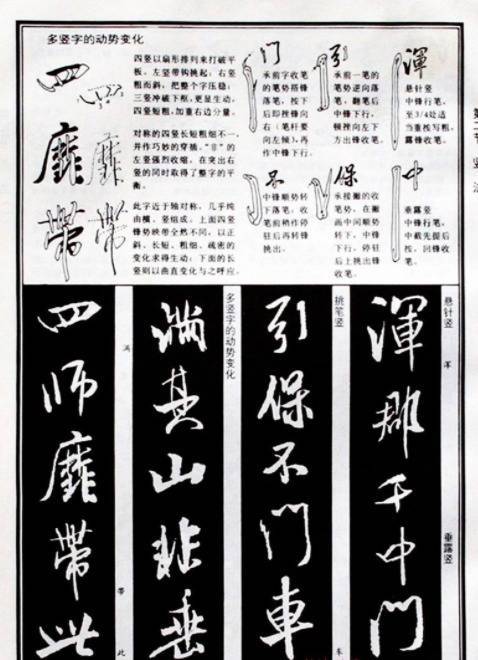 多竖字的动势变化
四
四竖以扇形排列来打破平
板。左竖带钩挑起；右竖
粗而斜，把整个字压稳；
三竖冲破下框，更显生动。
四竖短粗，加重右边分量。
靡
对称的四竖长短粗细不一，
并作巧妙的穿插。“非”的
左竖强烈收缩，在突出右
竖的同时取得了整字的平
衡。
帶
此字近于轴对称，几乎纯
由横、竖组成。上面四竖
锋势映带全然不同，以正
斜、长短、粗细、疏密的
变化求得生动；下面的长
竖则以曲直变化与之呼应。
门
承前字收笔
的笔势搭锋
落笔，按下
后即挫锋向
右（笔杆要
向左倾），再
作中锋下行。
引
承前一笔的
笔势逆向落
笔，翻笔后
中锋下行，
顿挫向左下
方出锋收笔。
渾
悬针竖
中锋行笔，
至3/4处适
当重按写粗，
露锋收笔。
不
中锋顺势转
下落笔；收
笔前稍作停
驻后再转锋
挑出。
保
承接撇的收
笔势，在撇
画中间顺势
转下，中锋
下行，停驻
后上挑出锋
收笔。
中
垂露竖
中锋行笔，
中截先提后
按，回锋收
笔。
悬针竖 垂露竖
渾郡千中門
挑笔竖
引保不門車
多竖字的动势变化
满其山非垂
满 带 此
四师靡帶此